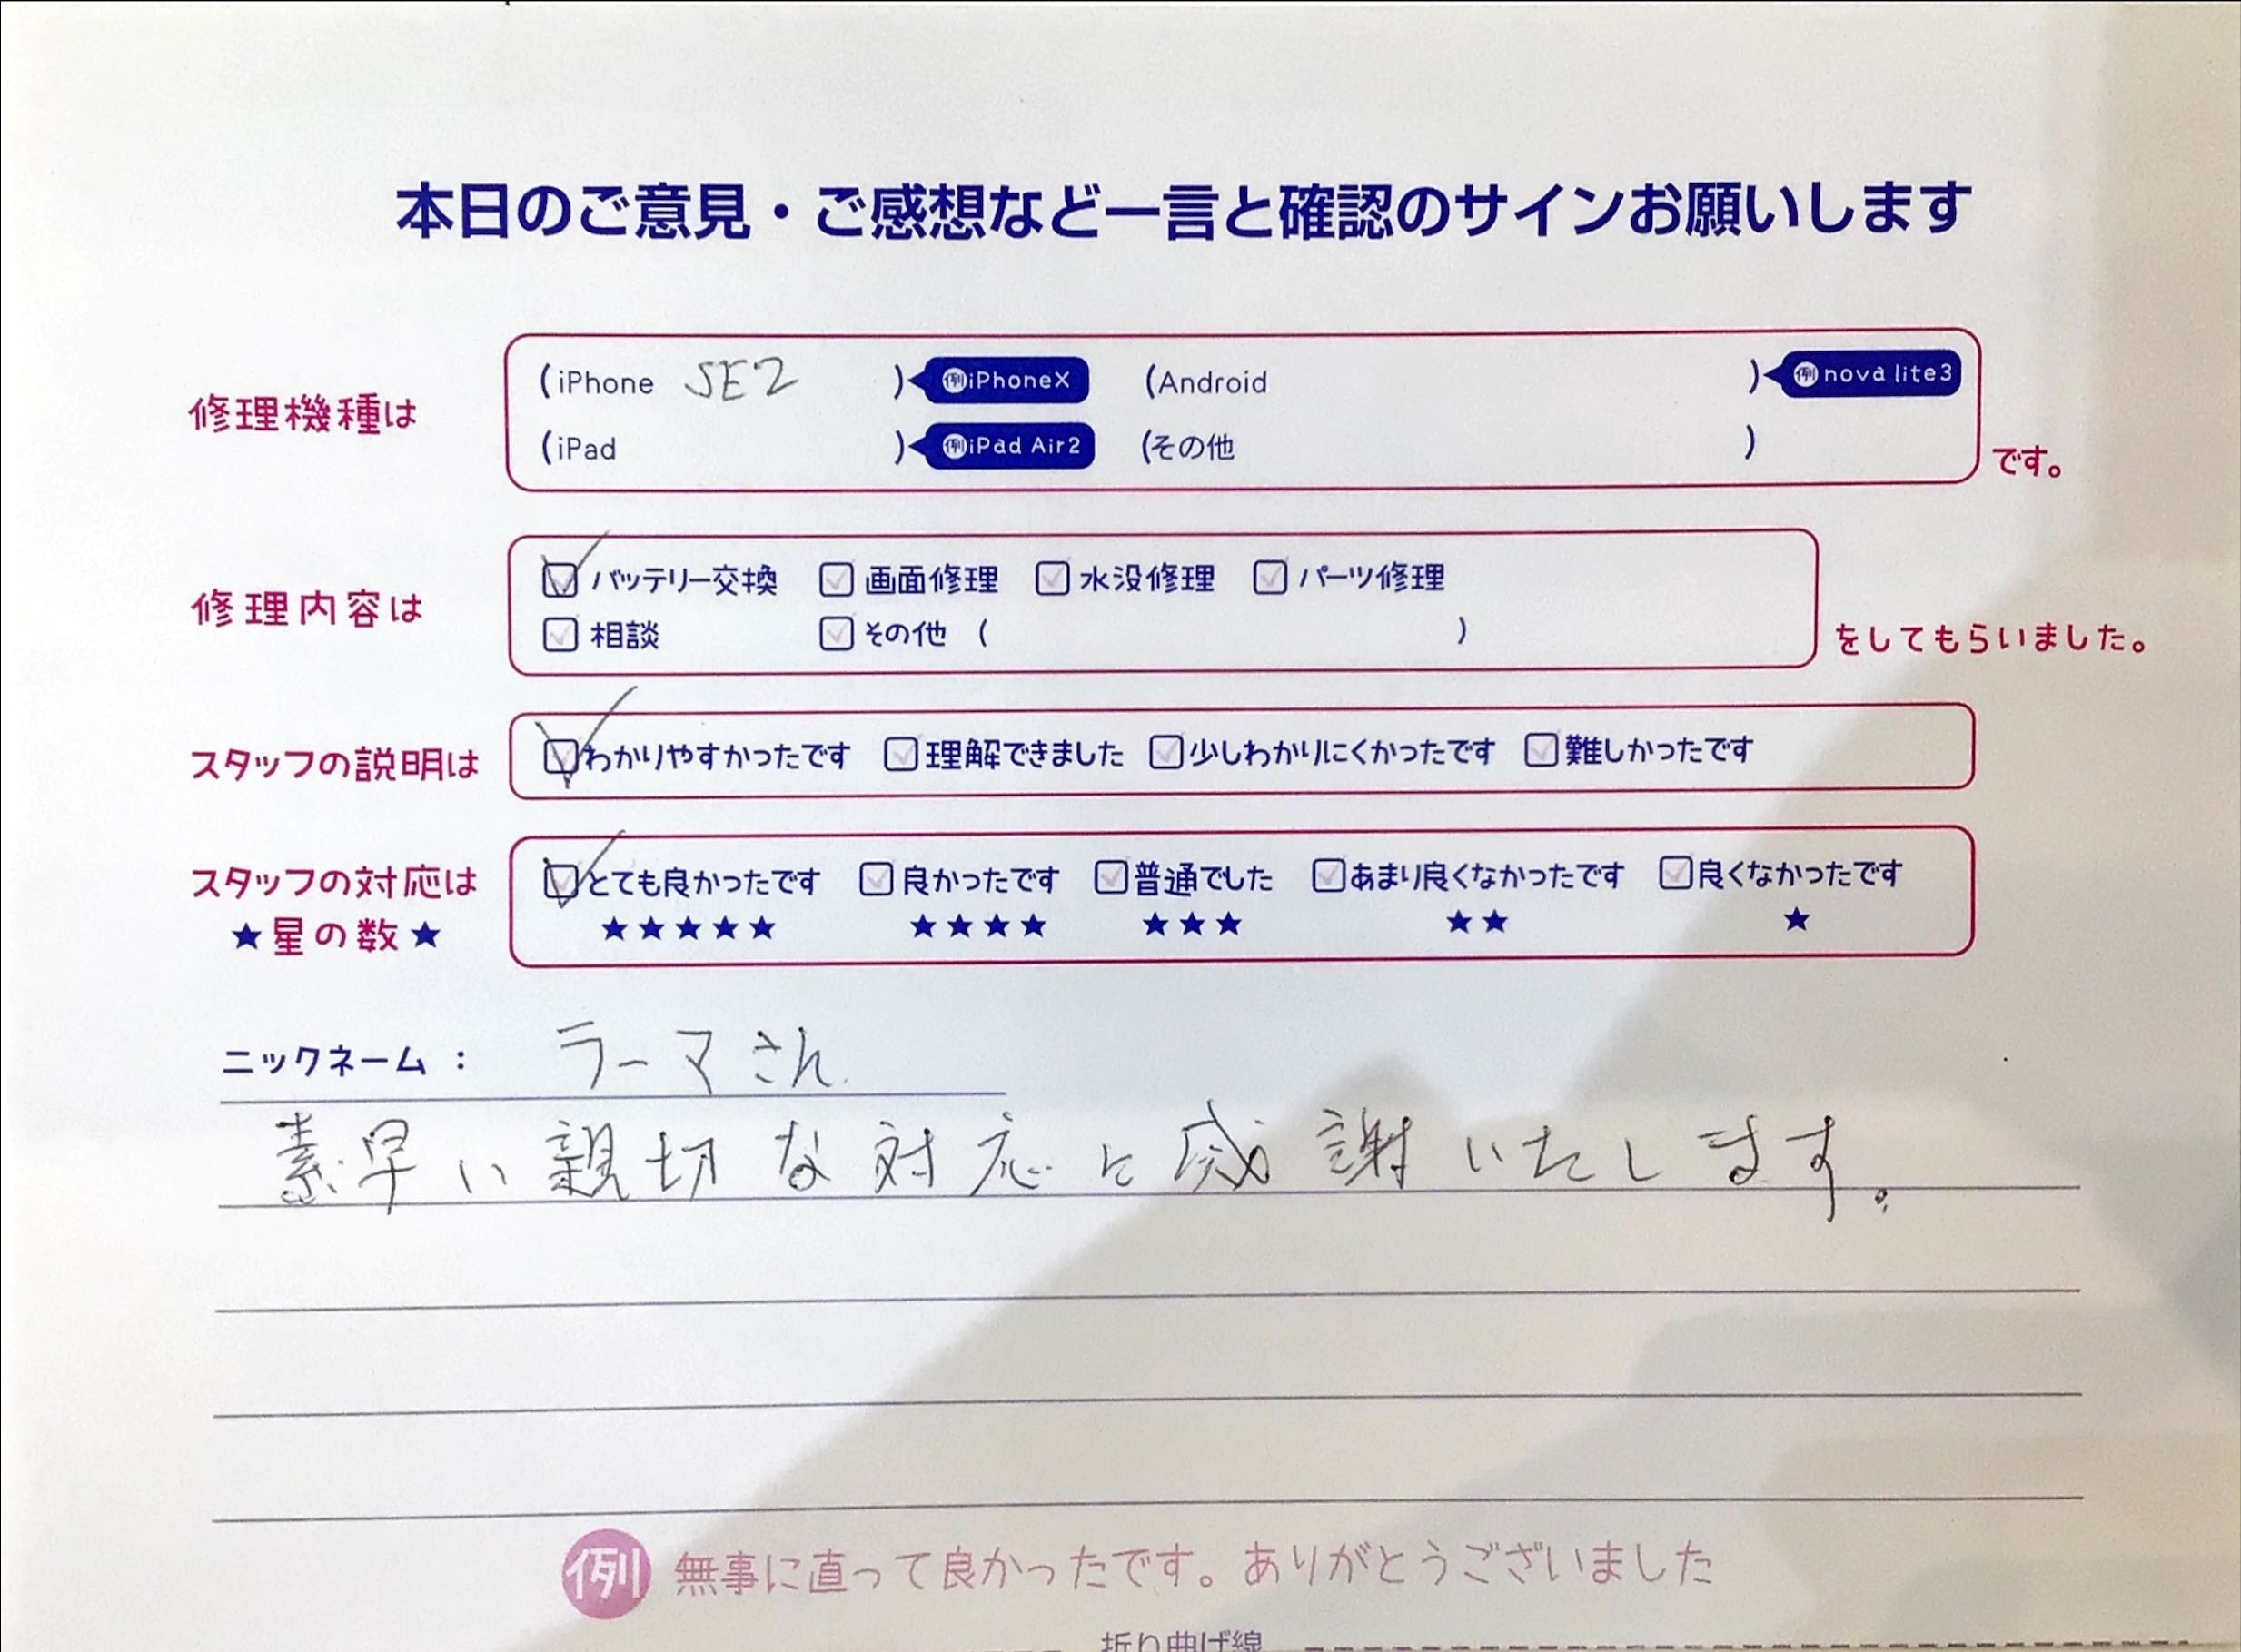 本日のご意見・ご感想など一言と確認のサインお願いします
修理機種は
(iPhone SE2 ) 例iPhoneX (Android ) 例nova lite3
(iPad ) 例iPad Air2 (その他 ) です。
修理内容は
バッテリー交換 画面修理 水没修理 パーツ修理
相談 その他 ( ) をしてもらいました。
スタッフの説明は わかりやすかったです 理解できました 少しわかりにくかったです 難しかったです
スタッフの対応は とても良かったです 良かったです 普通でした あまり良くなかったです 良くなかったです
★星の数★ ★★★★★ ★★★★ ★★★ ★★ ★
ニックネーム : ラーマさん
素早い親切な対応に感謝いたします。
例 無事に直って良かったです。ありがとうございました
折り曲げ線